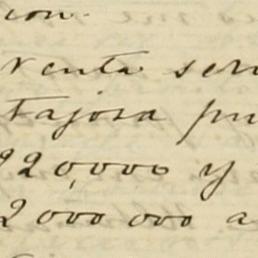 cion.
venta ser
tajosa pu
920,000 y
2000000 a